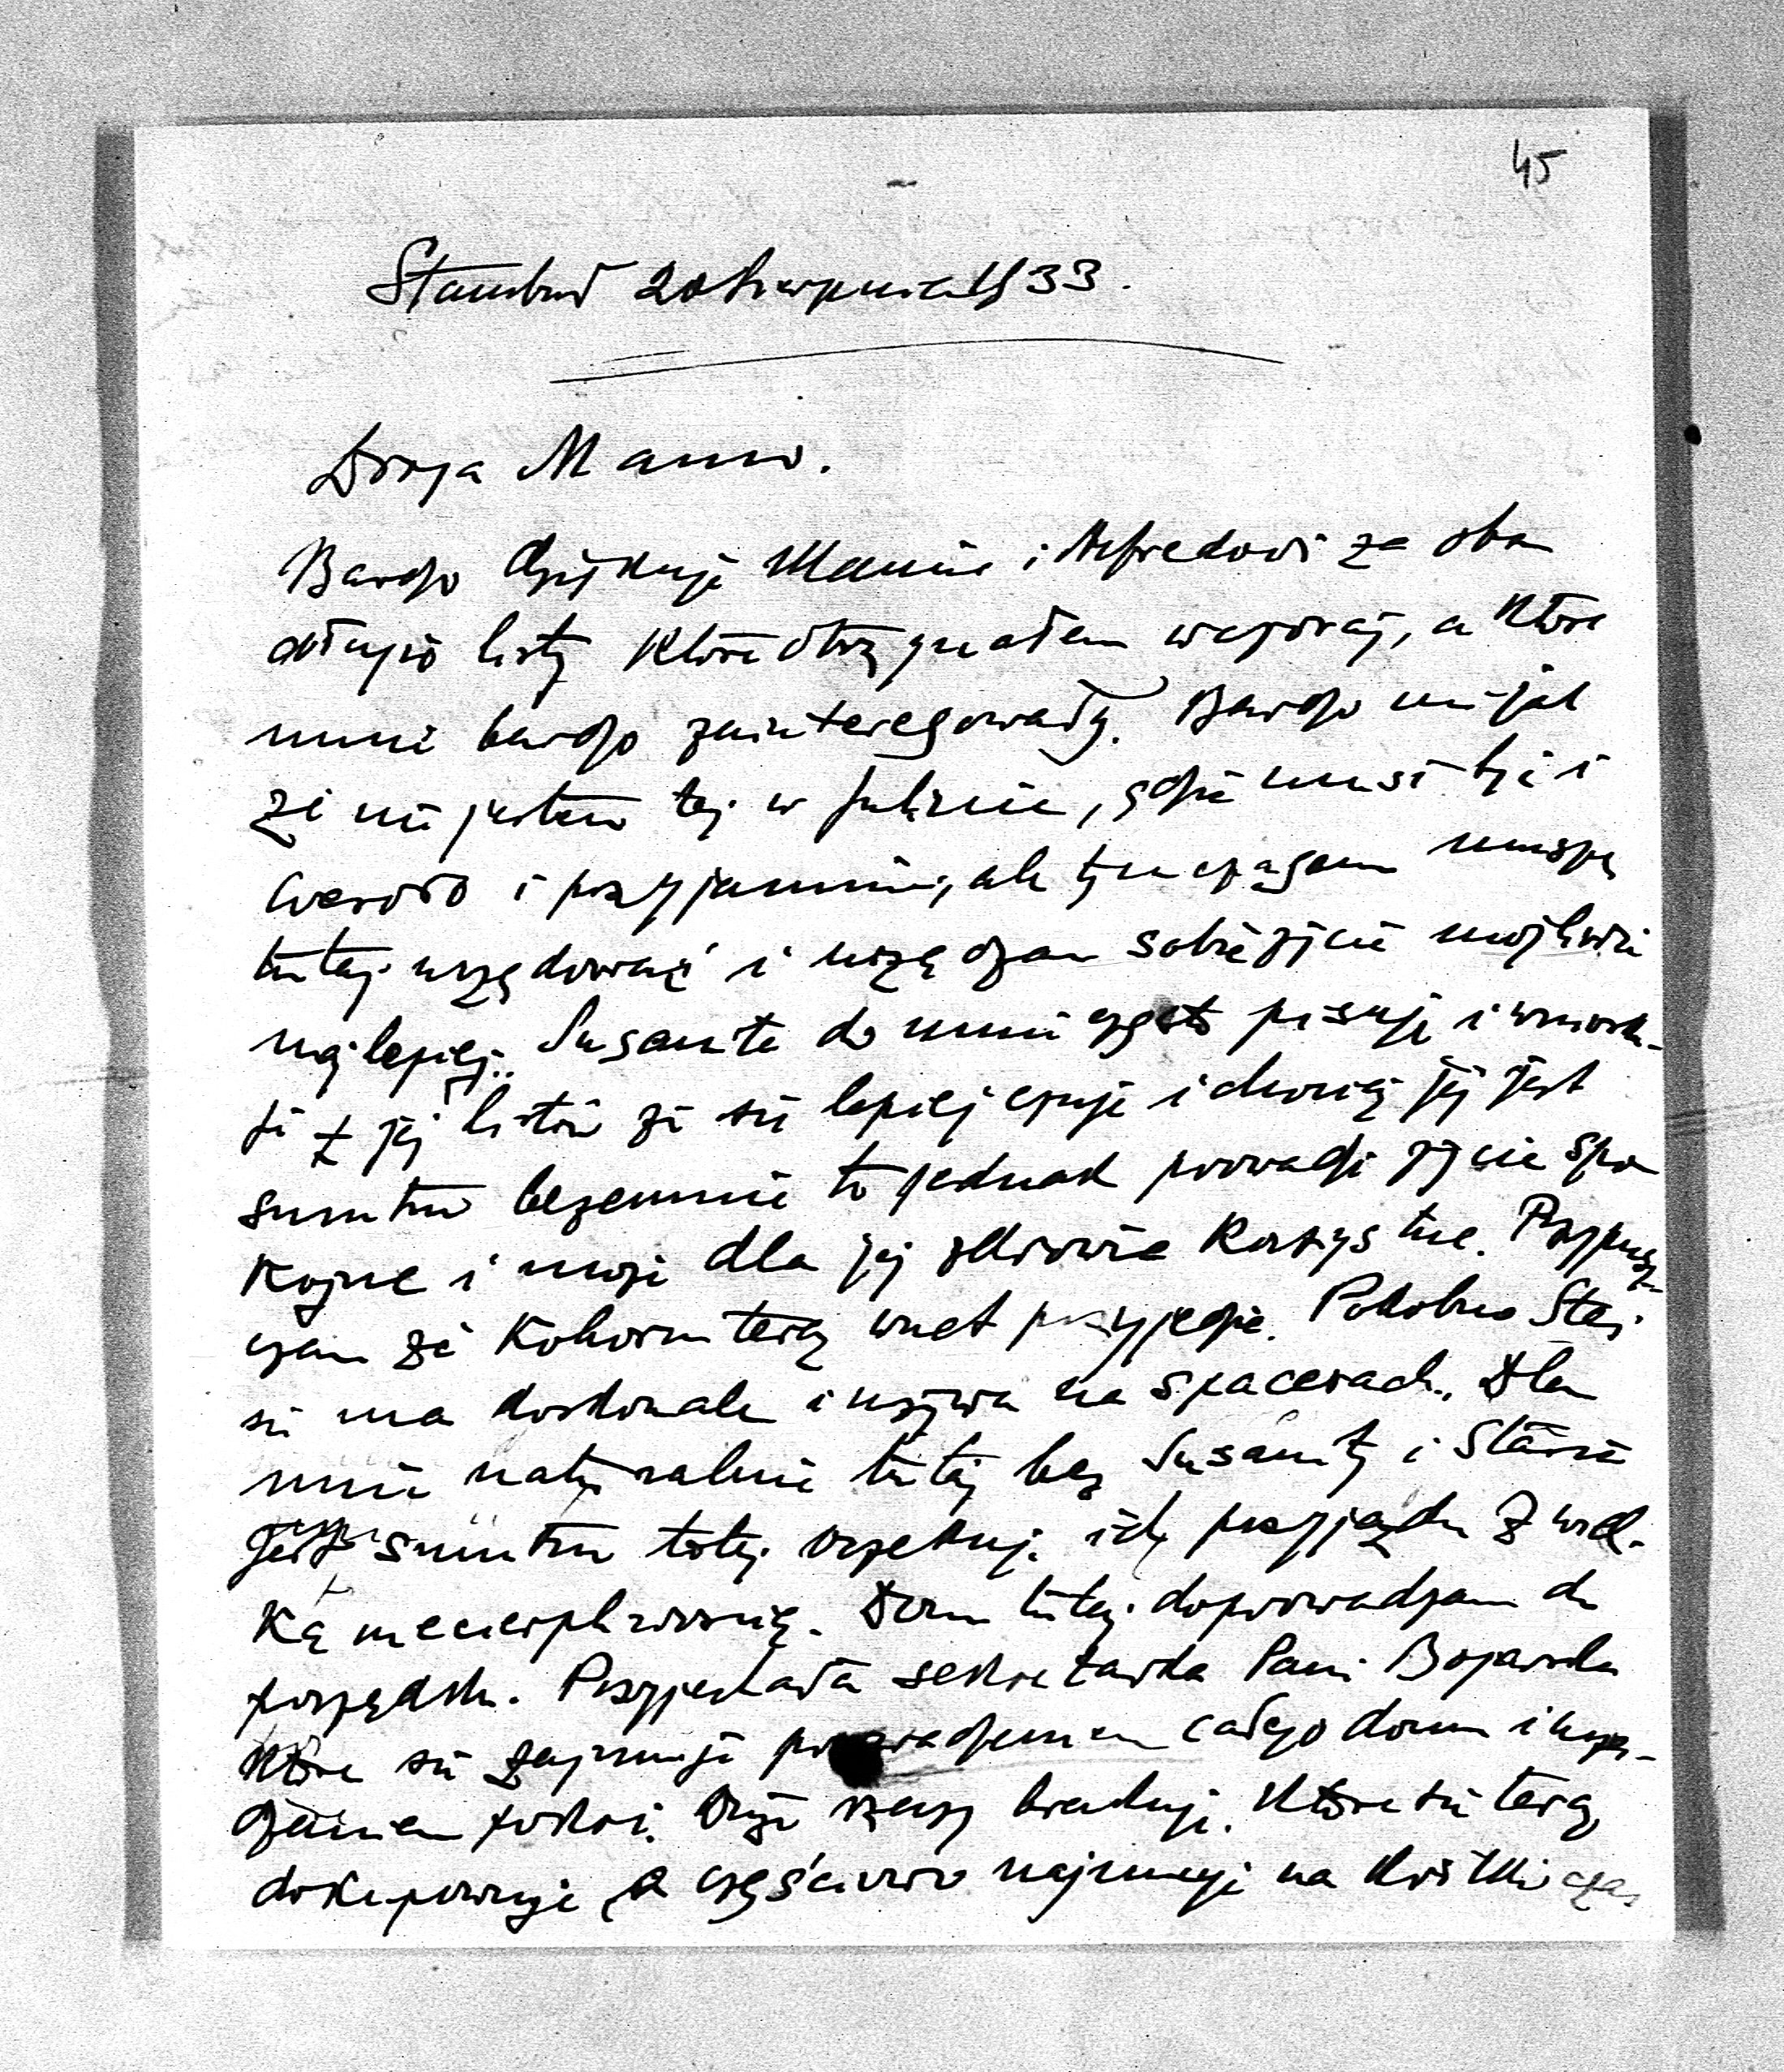 45
Stambuł 20 sierpnia 1933.
Droga Mamo.
Bardzo dziękuję Mamie i Alfredowi za oba
długie listy które otrzymałem wczoraj, a które
mnie bardzo zainteresowały. Bardzo mi żal
że nie jestem też w Julinie, gdzie musi być i
wesoło i przyjemnie, ale tymczasem muszę
tutaj urzędować i urządzam sobie życie możliwie
najlepiej. Susanita do mnie często pisuje i wniosku-
ję z jej listów że się lepiej czuje i chociaż jej jest
smutno bezemnie to jednak prowadzi życie spo-
kojne i może dla jej zdrowia korzystne. Przypusz-
czam że teraz wnet przyjedzie. Podobno Staś
się ma doskonale i używa na spacerach. Dla
mnie naturalnie tutaj bez Susanity i Stasia
jest smutno toteż oczekuję ich przyjazdu z wiel-
ką niecierpliwością. Dom tutaj doprowadzam do
porządku. Przyjechała sekretarka Pani
która się zajmuje prowadzeniem całego domu i urzą-
dzeniem pokoi. Dużo rzeczy brakuje, które się teraz
dokupowuje, a częściowo najmuje na krótki czas